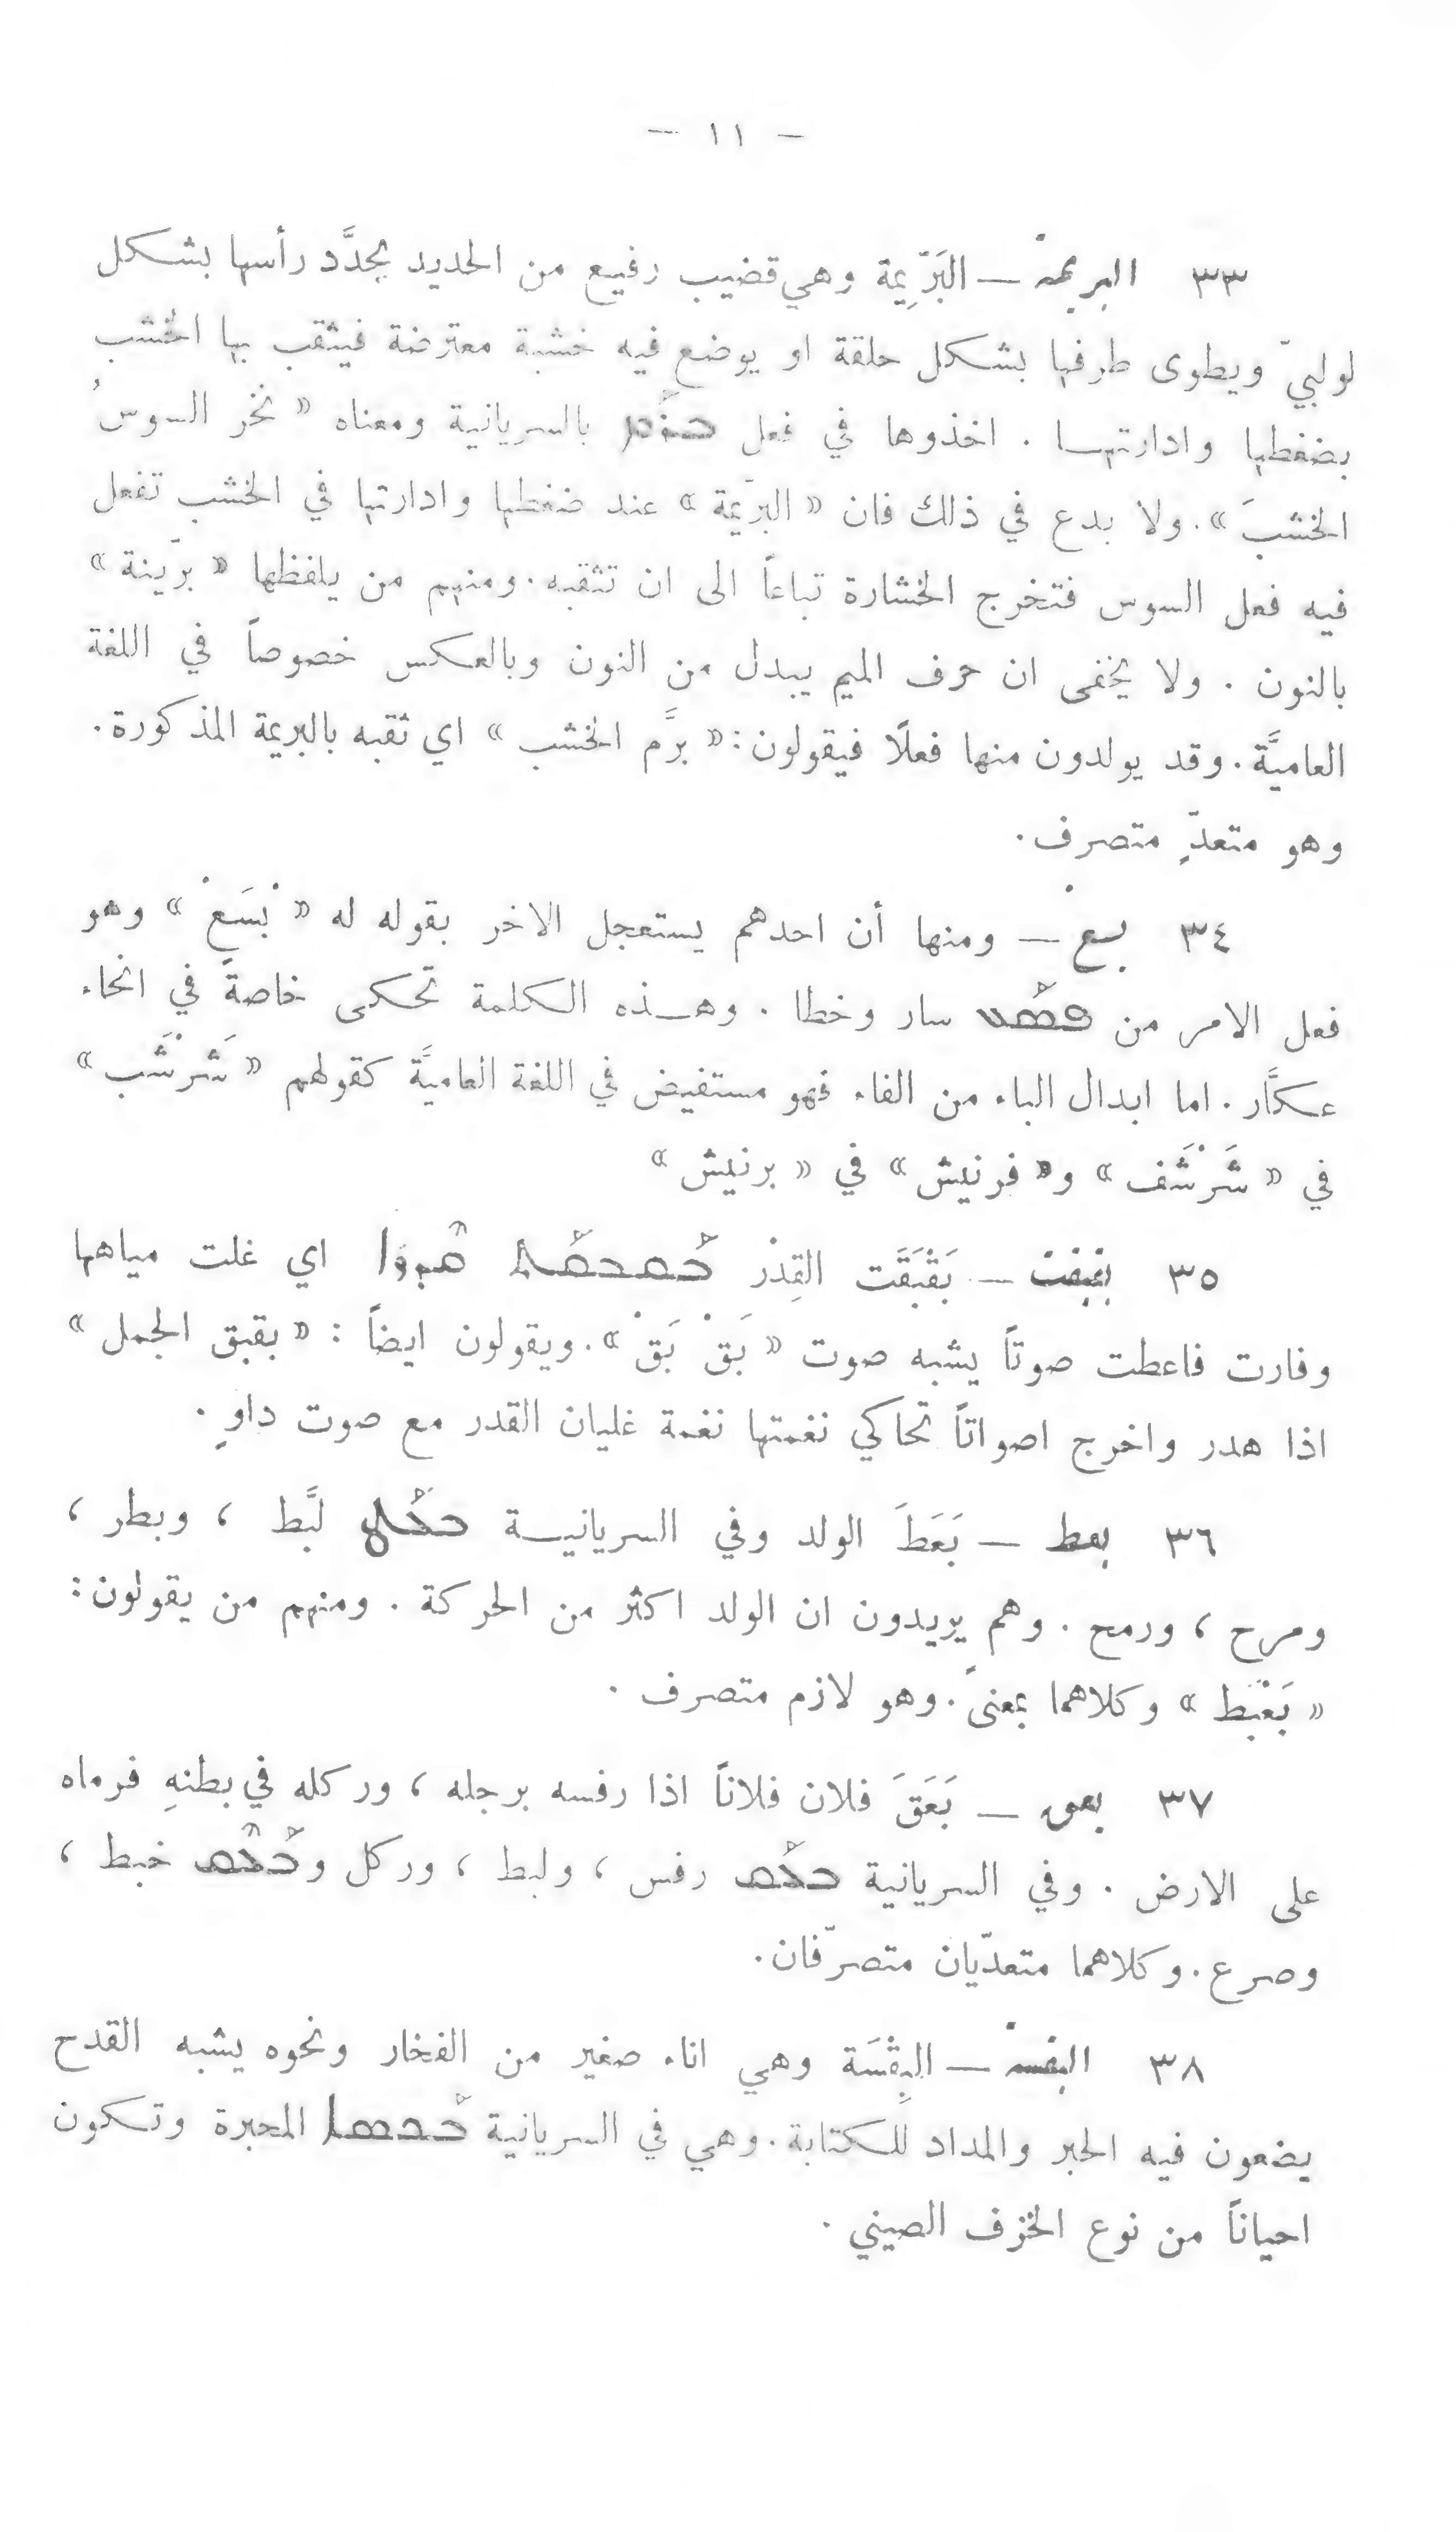 – ١١ –
٣٣ البريمة – البَرِّيمة وهي قضيب رفيع من الحديد يجدَّد رأسها بشكل
لولبيّ ويطوى طرفها بشكل حلقة او يوضع فيه خشبة معترضة فيثقب بها الخشب
بضغطها وادارتهـا . اخذوها في فعل بالسريانية ومعناه « نخر السوسُ
الخشبَ ». ولا بدع في ذلك فان « البرّيمة » عند ضغطها وادارتها في الخشب تفعل
فيه فعل السوس فتخرج الخشارة تباعاً الى ان تثقبه. ومنهم من يلفظها « برّينة »
بالنون . ولا يخفى ان حرف الميم يبدل من النون وبالعكس خصوصاً في اللغة
العاميَّة. وقد يولدون منها فعلًا فيقولون: « برَّم الخشب » اي ثقبه بالبريمة المذكورة.
وهو متعدّيٍ متصرف.
٣٤ بسع – ومنها أن احدهم يستعجل الاخر بقوله له « بْسَعْ » وهو
فعل الامر من ܦܣܰܥ سار وخطا . وهـذه الكلمة تحكى خاصةً في انحاء
عكَّار. اما ابدال الباء من الفاء فهو مستفيض في اللغة العاميَّة كقولهم « شَرْشَب »
في « شَرْشَف » و« فرنيش » في « برنيش »
٣٥ بقبقت – بَقْبَقَت القِدْر ܒܰܩܒܩܰܬ ܩܶܕܪܐ اي غلت مياهها
وفارت فاعطت صوتاً يشبه صوت « بَقْ بَقْ ». ويقولون ايضاً : « بقبق الجمل »
اذا هدر واخرج اصواتاً تحاكي نغمتها نغمة غليان القدر مع صوت داوٍ .
٣٦ بعط – بَعَطَ الولد وفي السريانيـة ܒܥܰܛ لبَّط ، وبطر ،
ومرح ، ورمح . وهم يريدون ان الولد اكثر من الحركة . ومنهم من يقولون:
« بَعْبَط » وكلاهما بمعنىً. وهو لازم متصرف .
٣٧ بعق – بَعَقَ فلان فلاناً اذا رفسه برجله ، وركله في بطنهِ فرماه
على الارض . وفي السريانية ܒܥܰܩ رفس ، ولبط ، وركل وܒܰܥܶܩ خبط ،
وصرع. وكلاهما متعدّيان متصرّفان.
٣٨ البقسة – البِقْسَة وهي اناء صغير من الفخار ونحوه يشبه القدح
يضعون فيه الحبر والمداد للكتابة. وهي في السريانية المحبرة وتكون
احياناً من نوع الخزف الصيني .